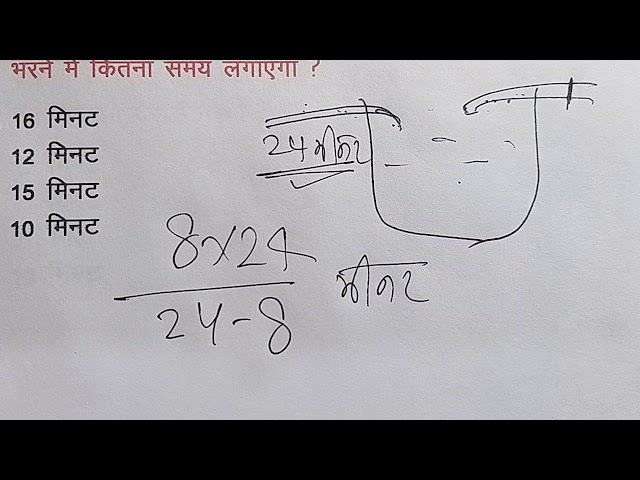 भरने में कितना समय लगाएगा ?
16 मिनट
12 मिनट
15 मिनट
10 मिनट
24 मीनट
8x24
24-8
मीनट